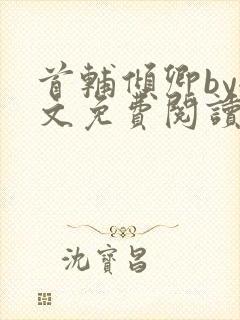 首輔傾卿by
文免費閱讀
沈寶昌